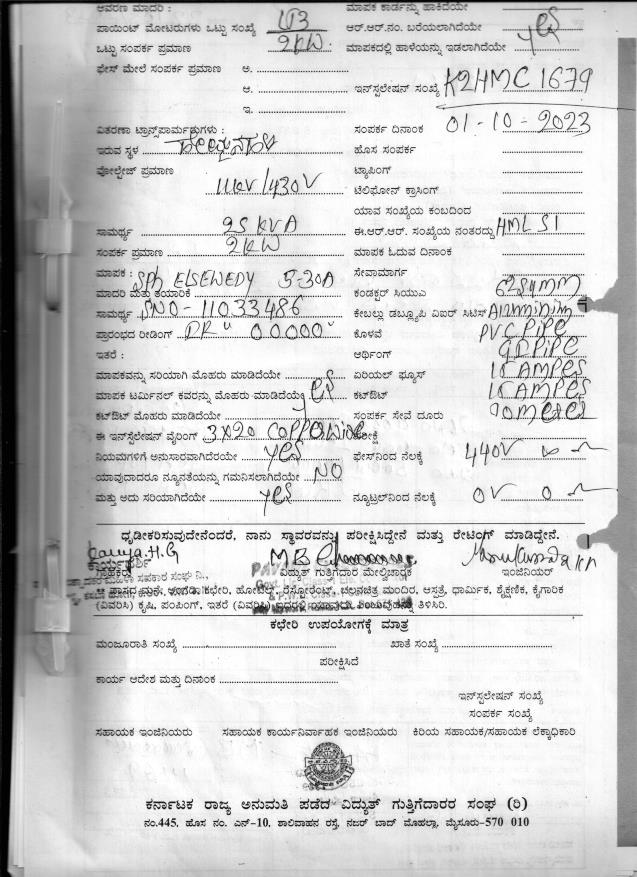 ಆವರಣ ಮಾದರಿ : ಮಾಪಕ ಕಾರ್ಡನ್ನು ಹಾಕಿದೆಯೇ
ಪಾಯಿಂಟ್ ಮೋಟರುಗಳು ಒಟ್ಟು ಸಂಖ್ಯೆ ಆರ್.ಆರ್.ನಂ. ಬರೆಯಲಾಗಿದೆಯೇ yes
ಒಟ್ಟು ಸಂಪರ್ಕ ಪ್ರಮಾಣ 2KW ಮಾಪಕದಲ್ಲಿ ಹಾಳೆಯನ್ನು ಇಡಲಾಗಿದೆಯೇ yes
ಫೇಸ್ ಮೇಲೆ ಸಂಪರ್ಕ ಪ್ರಮಾಣ ಅ.
ಆ. ಇನ್‌ಸ್ಟಲೇಷನ್ ಸಂಖ್ಯೆ K2HMC 1679
ಇ.
ವಿತರಣಾ ಟ್ರಾನ್ಸ್‌ಪಾರ್ಮರ್‍ಗಳು : ಸಂಪರ್ಕ ದಿನಾಂಕ 01-10-2023
ಇರುವ ಸ್ಥಳ ಹೊಸ ಸಂಪರ್ಕ
ವೋಲ್ಟೇಜ್ ಪ್ರಮಾಣ 11KV/430V ಟ್ಯಾಪಿಂಗ್
ಟೆಲಿಫೋನ್ ಕ್ರಾಸಿಂಗ್
ಯಾವ ಸಂಖ್ಯೆಯ ಕಂಬದಿಂದ
ಸಾಮರ್ಥ್ಯ 25 KVA ಈ.ಆರ್.ಆರ್. ಸಂಖ್ಯೆಯ ನಂತರದ್ದು HML 51
ಸಂಪರ್ಕ ಪ್ರಮಾಣ 2KW ಮಾಪಕ ಓದುವ ದಿನಾಂಕ
ಮಾಪಕ : SPh ELSEWEDY 5-30A ಸೇವಾಮಾರ್ಗ
ಮಾದರಿ ಮತ್ತು ತಯಾರಿಕೆ ಕಂಡಕ್ಟರ್ ಸಿಯುಎ
ಸಾಮರ್ಥ್ಯ SNO-11033486 ಕೇಬಲ್ಲು ಡಬ್ಲ್ಯೂಪಿ ವಿಐರ್ ಸಿಟಿಸ್ Aluminim
ಪ್ರಾರಂಭದ ರೀಡಿಂಗ್ 00000 ಕೊಳವೆ PVC PIPE
ಇತರೆ : ಆರ್ಥಿಂಗ್ GI PIPE
ಮಾಪಕವನ್ನು ಸರಿಯಾಗಿ ಮೊಹರು ಮಾಡಿದೆಯೇ ಏರಿಯಲ್ ಫ್ಯೂಸ್ 15 AMPES
ಮಾಪಕ ಟರ್ಮಿನಲ್ ಕವರನ್ನು ಮೊಹರು ಮಾಡಿದೆಯೇ yes ಕಟ್‌ಔಟ್ 15 AMPES
ಕಟ್‌ಔಟ್ ಮೊಹರು ಮಾಡಿದೆಯೇ ಸಂಪರ್ಕ ಸೇವೆ ದೂರು
ಈ ಇನ್‌ಸ್ಟಲೇಷನ್ ವೈರಿಂಗ್ 3X20 COPPER Wire ಪರೀಕ್ಷೆ
ನಿಯಮಗಳಿಗೆ ಅನುಸಾರವಾಗಿದೆರಯೇ yes ಫೇಸ್‌ನಿಂದ ನೆಲಕ್ಕೆ 440V
ಯಾವುದಾದರೂ ನ್ಯೂನತೆಯನ್ನು ಗಮನಿಸಲಾಗಿದೆಯೇ NO
ಮತ್ತು ಅದು ಸರಿಯಾಗಿದೆಯೇ yes ನ್ಯೂಟ್ರಲ್‌ನಿಂದ ನೆಲಕ್ಕೆ 0V 0
ಧೃಡೀಕರಿಸುವುದೇನೆಂದರೆ, ನಾನು ಸ್ಥಾವರವನ್ನು ಪರೀಕ್ಷಿಸಿದ್ದೇನೆ ಮತ್ತು ರೇಟಿಂಗ್ ಮಾಡಿದ್ದೇನೆ.
ಕಾರ್ಯದರ್ಶಿ
ವಿದ್ಯುತ್ ಗುತ್ತಿಗೆದಾರ ಮೇಲ್ವಿಚಾರಕ ಇಂಜಿನಿಯರ್
ಹೋಟೆಲ್, ರೆಸ್ಟೋರೆಂಟ್, ಚಲನಚಿತ್ರ ಮಂದಿರ, ಆಸ್ಪತ್ರೆ, ಧಾರ್ಮಿಕ, ಶೈಕ್ಷಣಿಕ, ಕೈಗಾರಿಕ
(ವಿವರಿಸಿ) ಕೃಷಿ, ಪಂಪಿಂಗ್, ಇತರೆ (ವಿವರಿಸಿ) ತಿಳಿಸಿರಿ.
ಕಛೇರಿ ಉಪಯೋಗಕ್ಕೆ ಮಾತ್ರ
ಮಂಜೂರಾತಿ ಸಂಖ್ಯೆ ಖಾತೆ ಸಂಖ್ಯೆ
ಪರೀಕ್ಷಿಸಿದೆ
ಕಾರ್ಯ ಆದೇಶ ಮತ್ತು ದಿನಾಂಕ
ಇನ್‌ಸ್ಟಲೇಷನ್ ಸಂಖ್ಯೆ
ಸಂಪರ್ಕ ಸಂಖ್ಯೆ
ಸಹಾಯಕ ಇಂಜಿನಿಯರು ಸಹಾಯಕ ಕಾರ್ಯನಿರ್ವಾಹಕ ಇಂಜಿನಿಯರು ಕಿರಿಯ ಸಹಾಯಕ/ಸಹಾಯಕ ಲೆಕ್ಕಾಧಿಕಾರಿ
ಕರ್ನಾಟಕ ರಾಜ್ಯ ಅನುಮತಿ ಪಡೆದ ವಿದ್ಯುತ್ ಗುತ್ತಿಗೆದಾರರ ಸಂಘ (ರಿ)
ನಂ.445, ಹೊಸ ನಂ. ಎನ್-10, ಶಾಲಿವಾಹನ ರಸ್ತೆ, ನಜರ್ ಬಾದ್ ಮೊಹಲ್ಲಾ, ಮೈಸೂರು-570 010